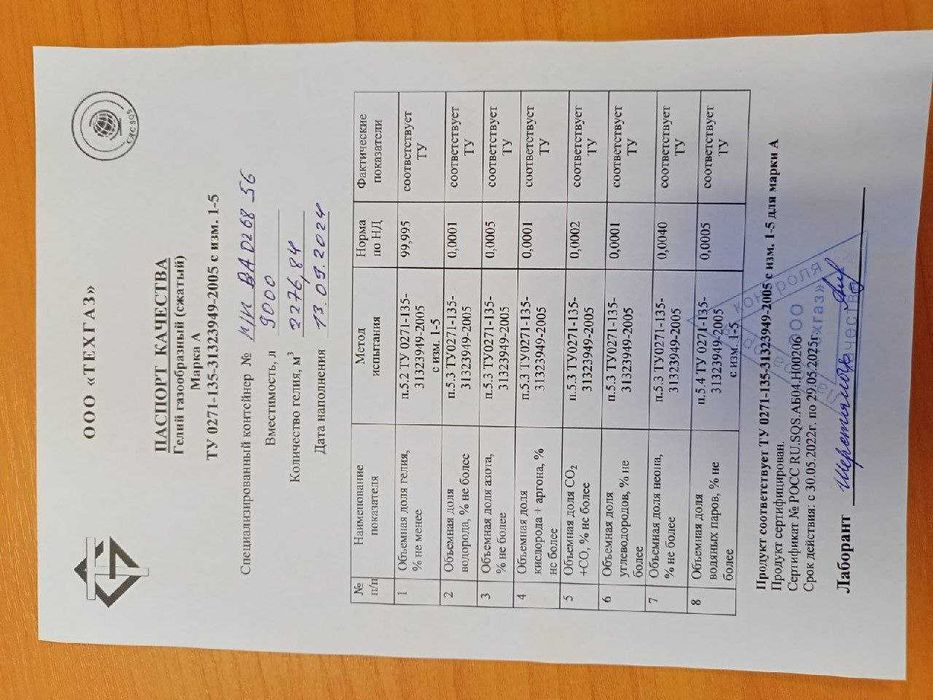 ООО «ТЕХГАЗ»
ПАСПОРТ КАЧЕСТВА
Гелий газообразный (сжатый)
Марка А
ТУ 0271-135-31323949-2005 с изм. 1-5
Специализированный контейнер №
Вместимость, л 9000
Количество гелия, м³ 2276,84
Дата наполнения 13.09.2024
№ п/п Наименование показателя Метод испытания Норма по НД Фактические показатели
1 Объемная доля гелия, % не менее п.5.2 ТУ 0271-135-31323949-2005 с изм. 1-5 99,995 соответствует ТУ
2 Объемная доля водорода, % не более п.5.3 ТУ0271-135-31323949-2005 0,0001 соответствует ТУ
3 Объемная доля азота, % не более п.5.3 ТУ0271-135-31323949-2005 0,0005 соответствует ТУ
4 Объемная доля кислорода + аргона, % не более п.5.3 ТУ0271-135-31323949-2005 0,0001 соответствует ТУ
5 Объемная доля СО₂ +СО, % не более п.5.3 ТУ0271-135-31323949-2005 0,0002 соответствует ТУ
6 Объемная доля углеводородов, % не более п.5.3 ТУ0271-135-31323949-2005 0,0001 соответствует ТУ
7 Объемная доля неона, % не более п.5.3 ТУ0271-135-31323949-2005 0,0040 соответствует ТУ
8 Объемная доля водяных паров, % не более п.5.4 ТУ 0271-135-31323949-2005 с изм. 1-5 0,0005 соответствует ТУ
Продукт соответствует ТУ 0271-135-31323949-2005 с изм. 1-5 для марки А
Продукт сертифицирован.
Сертификат № РОСС RU.SQS.АБ04.Н00206
Срок действия: с 30.05.2022г. по 29.05.2025г.
Лаборант
контроля
ООО